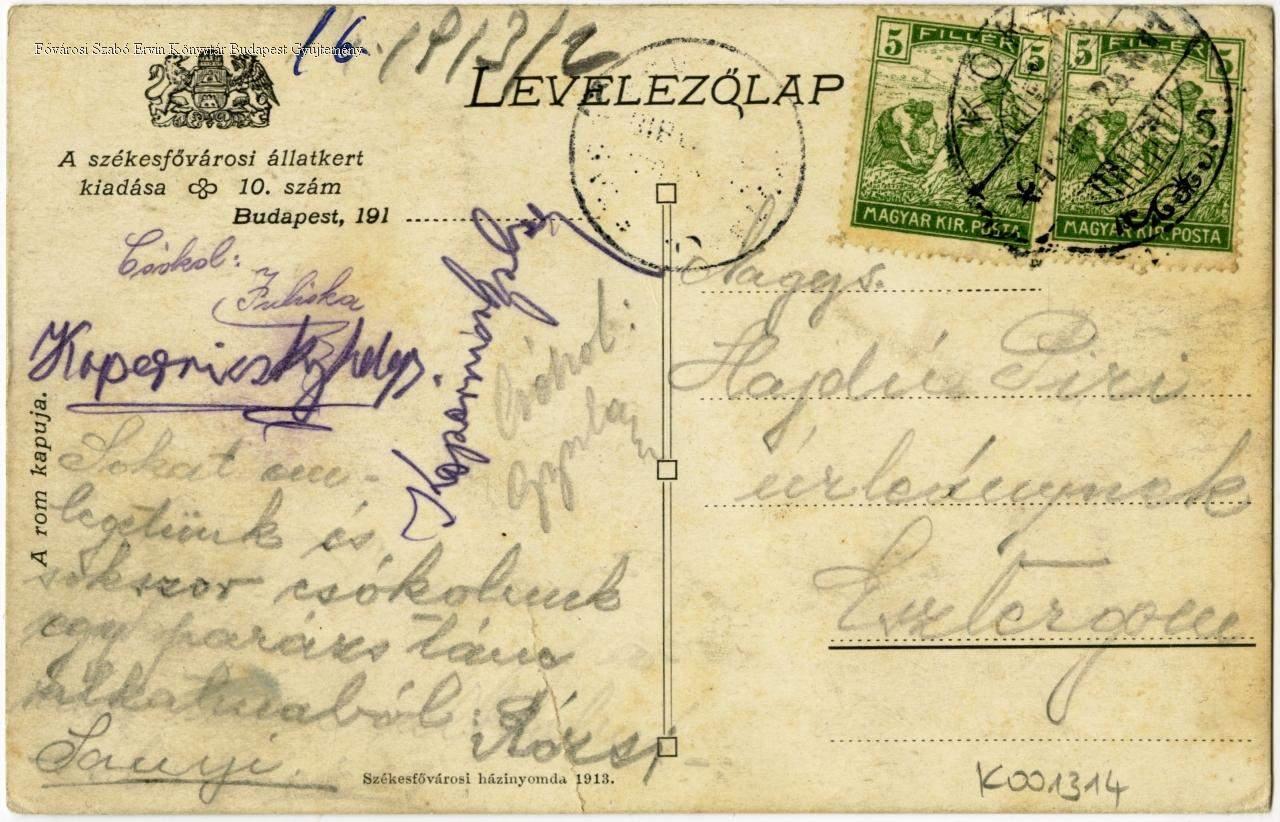 Fővárosi Szabó Ervin Könyvtár Budapest Gyűjtemény
16. 1913/2
LEVELEZŐLAP
5 FILLÉR 5
MAGYAR KIR. POSTA
5 FILLÉR 5
MAGYAR KIR. POSTA
A székesfővárosi állatkert
kiadása 10. szám
Budapest, 191
Csókol:
Juliska
A rom kapuja.
Csókol:
Gyula
Sokat em-
legetünk és
sokszor csókolunk
egy parázs tánc
alkalmából:
Rózsi
Sanyi.
Székesfővárosi házinyomda 1913.
Nagys.
Hajdú Piri
úrleánynak
Esztergom
K001314